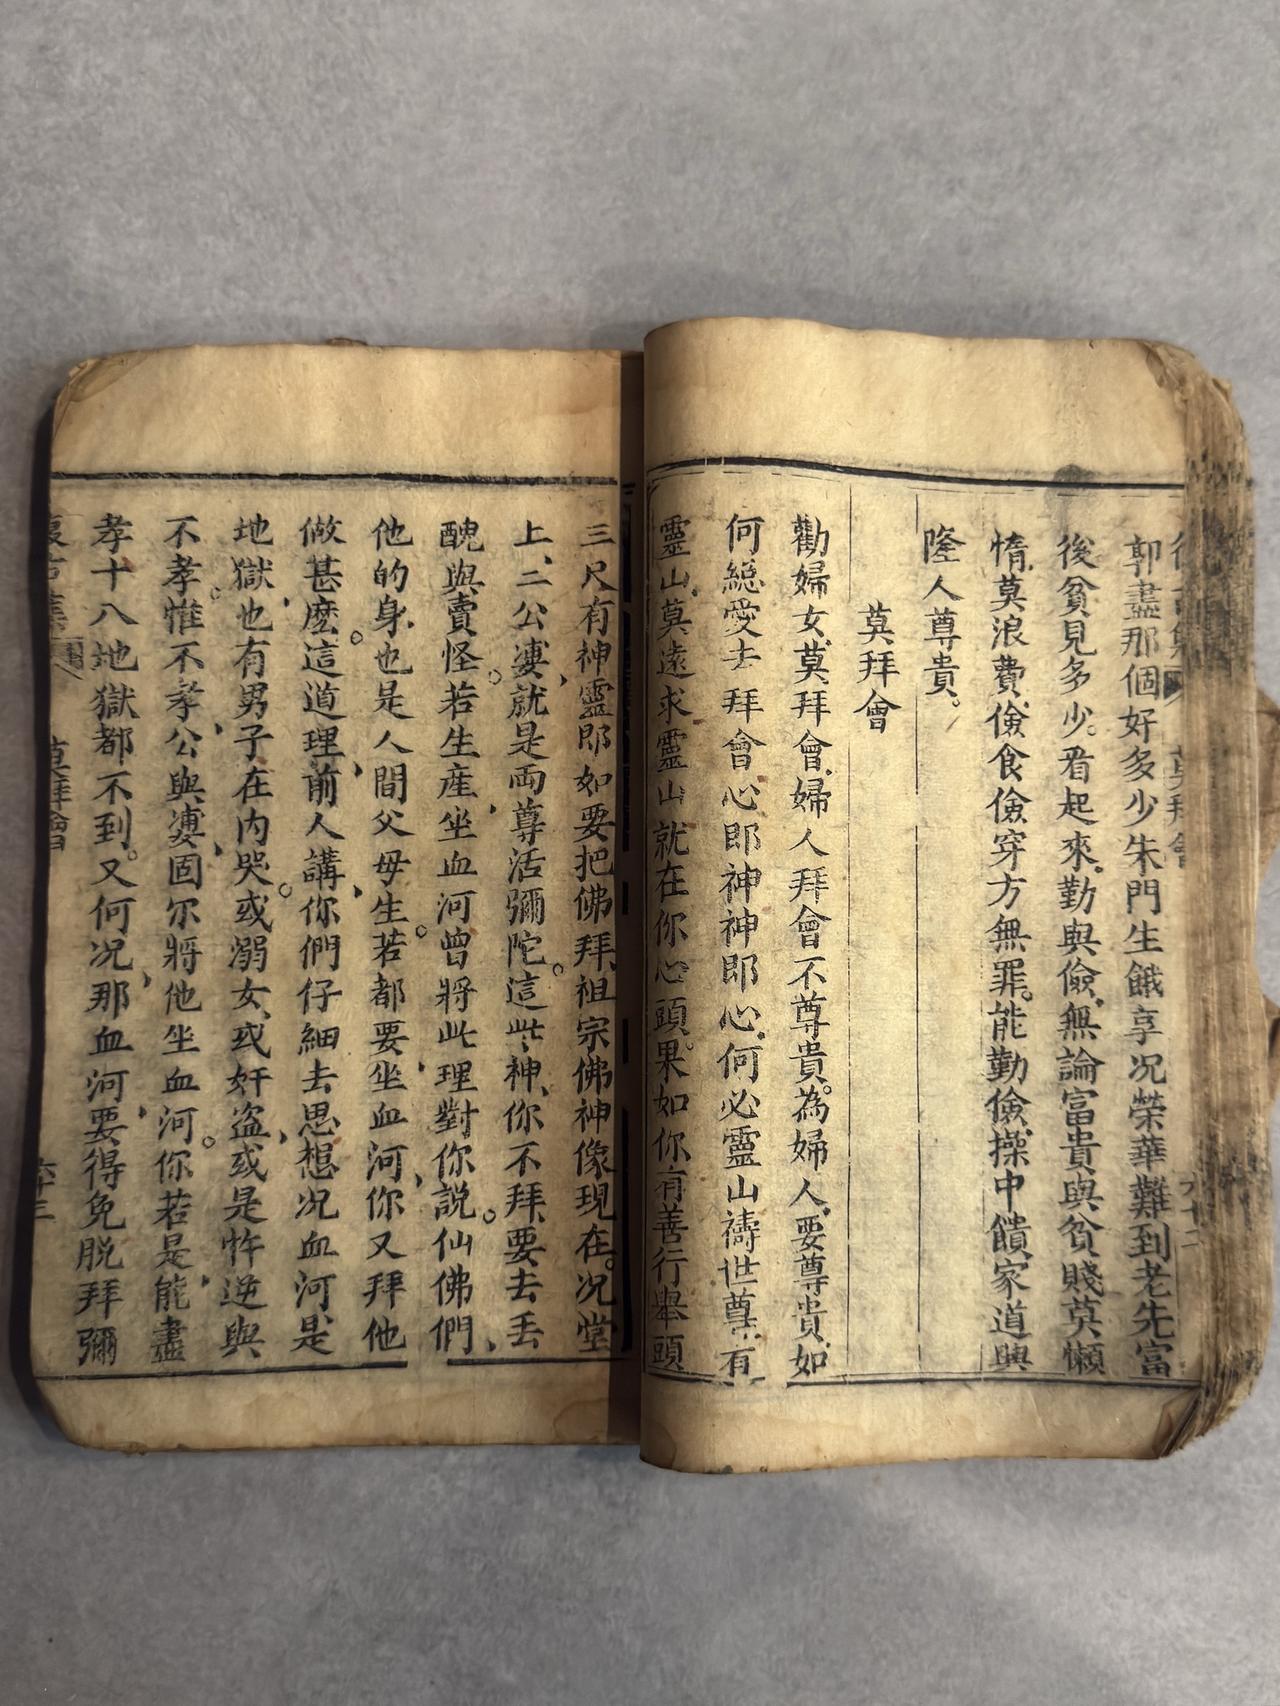 郭盡那個好多少朱門生餓莩况榮華難到老先富
後貧見多少。看起來勤與儉無論富貴與貧賤莫懶
惰莫浪費儉食儉穿方無罪能勤儉操中饋家道興
隆人尊貴。
莫拜會
勸婦女莫拜會婦人拜會不尊貴。為婦人要尊貴如
何總愛去拜會心即神神即心何必靈山禱世尊有
靈山莫遠求靈山就在你心頭。果如你有善行舉頭
三尺有神靈即如要把佛拜祖宗佛神像現在。况堂
上、二公婆、就是兩尊活彌陀。這些神、你不拜、要去丟
醜與賣怪。若生產、坐血河、曾將此理對你説。仙佛們、
他的身、也是人間父母生。若都要、坐血河、你又拜他
做甚麽。這道理、前人講、你們仔細去思想况血河、是
地獄、也有男子在内哭。或溺女、或奸盗、或是忤逆與
不孝。惟不孝、公與婆、固尔將他坐血河。你若是、能盡
孝十八地獄都不到。又何况、那血河、要得免脱拜彌
莫拜會
六十三